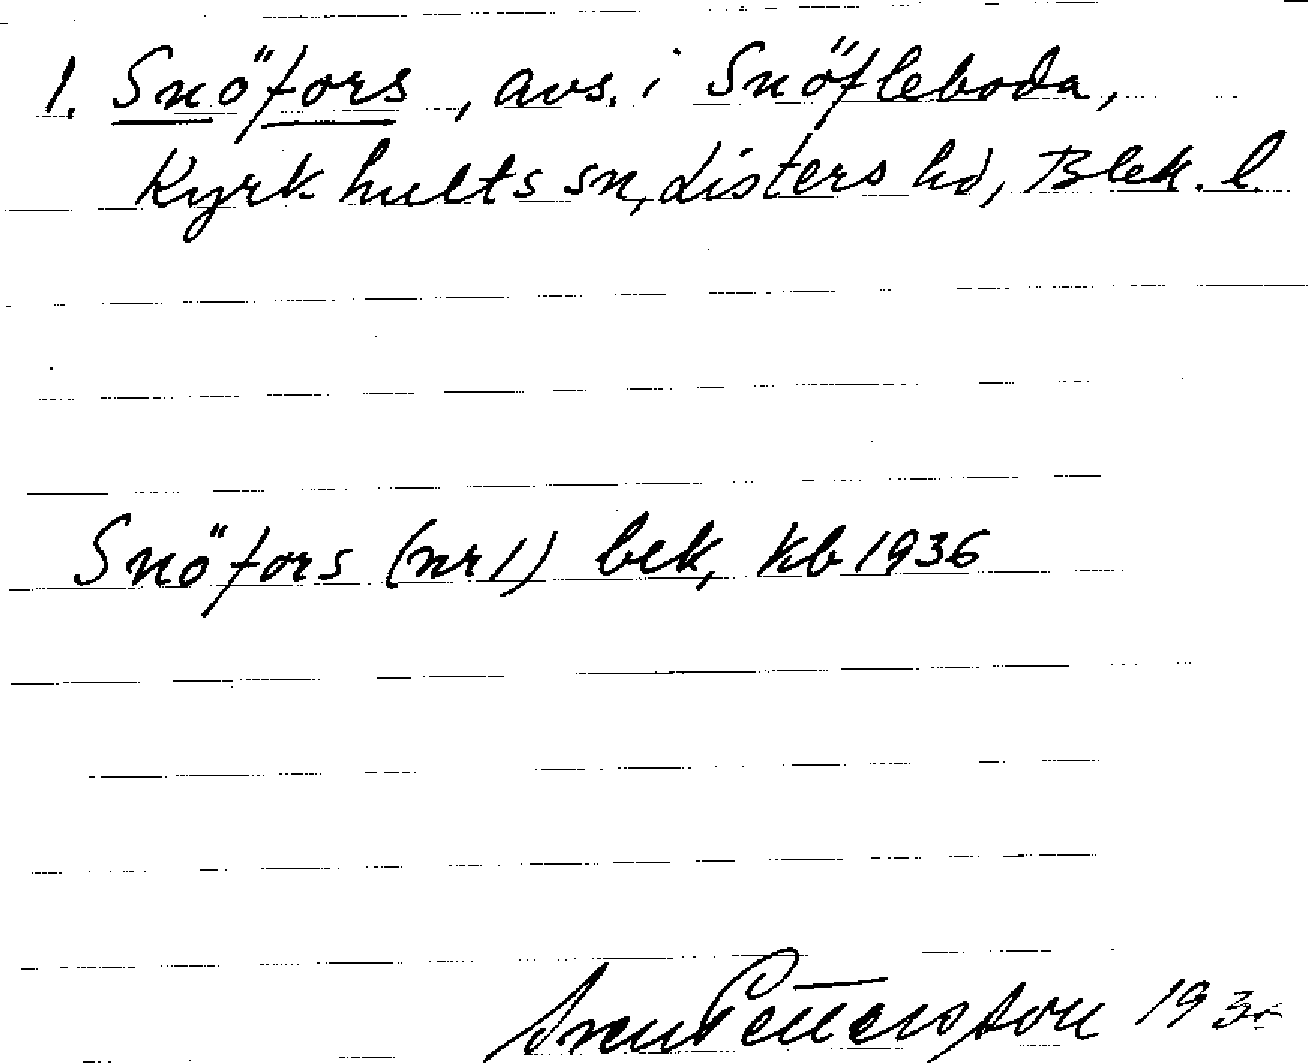 1. Snöfors, avs. i Snöfleboda,
Kyrkhults sn, Listers hd, Blek. l.
Snöfors (nr 1) bek, kb 1936
Sven Pettersson